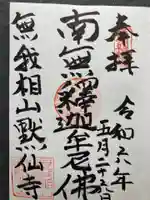 奉拝
令和六年
五月二十六日
南無釋迦牟尼佛
無我相山黙仙寺